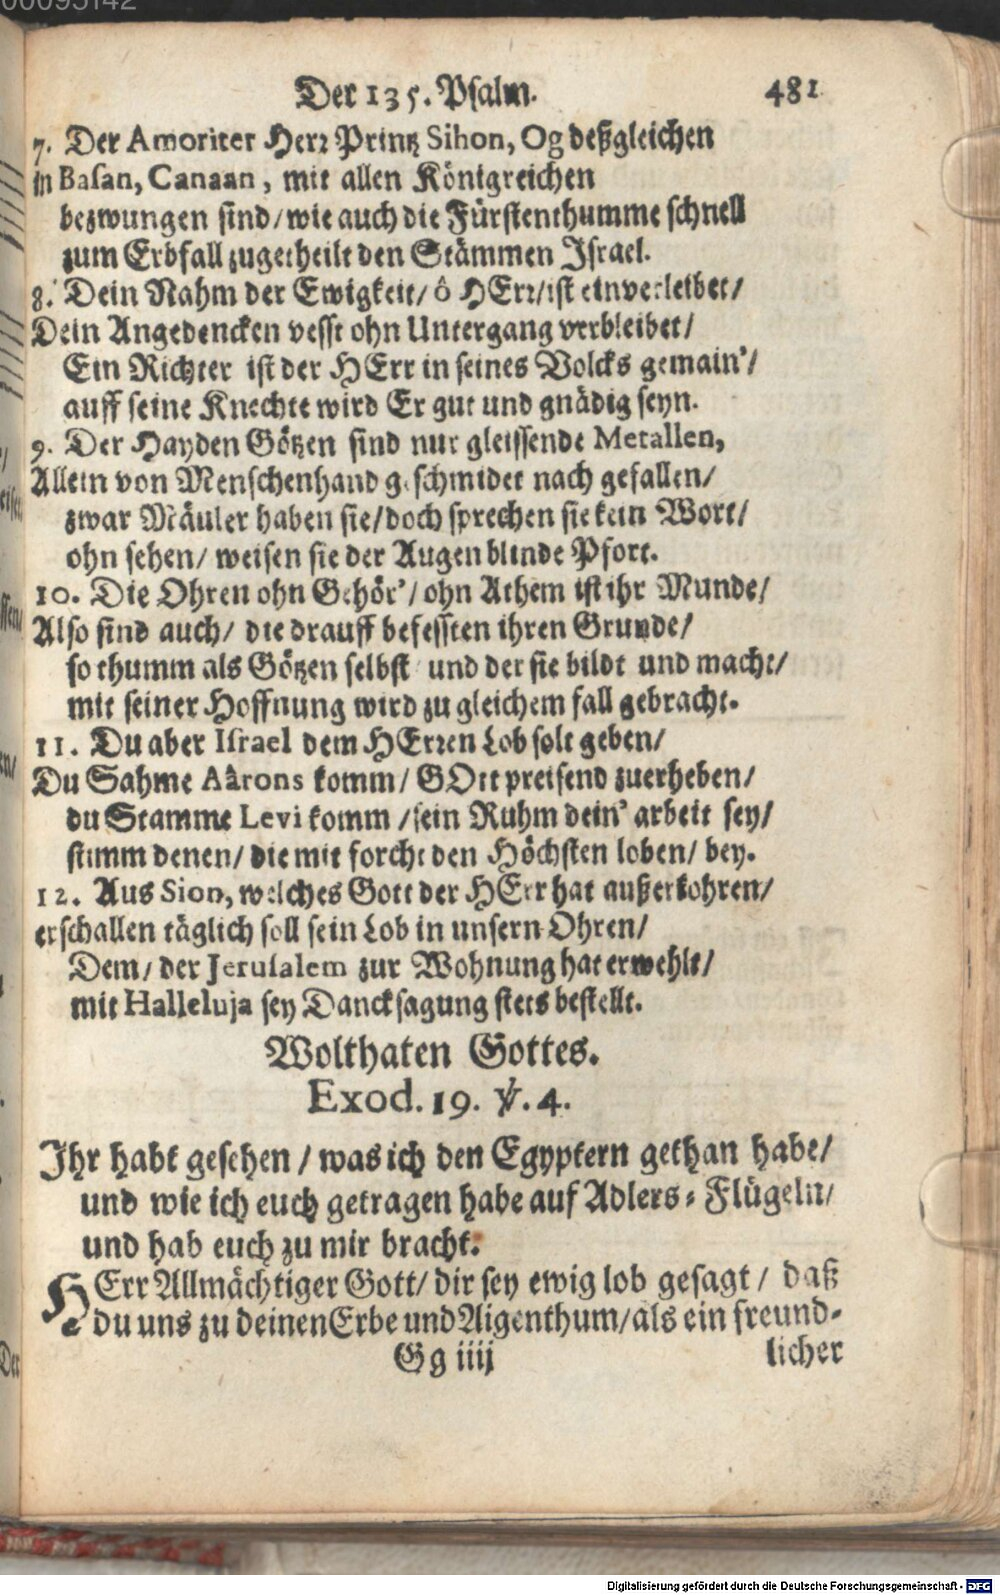 Der 135. Psalm. 481
7. Der Amoriter Herr Printz Sihon, Og deßgleichen
in Basan, Canaan, mit allen Königreichen
bezwungen sind/ wie auch die Fürstenthumme schnell
zum Erbfall zugetheilt den Stämmen Israel.
8. Dein Nahm der Ewigkeit/ ô HErr/ ist einverleibet/
Dein Angedencken vesst ohn Untergang verbleibet/
Ein Richter ist der HErr in seines Volcks gemain'/
auff seine Knechte wird Er gut und gnädig seyn.
9. Der Hayden Götzen sind nur gleissende Metallen,
Allein von Menschenhand geschmidet nach gefallen/
zwar Mäuler haben sie/ doch sprechen sie kein Wort/
ohn sehen/ weisen sie der Augen blinde Pfort.
10. Die Ohren ohn Gehör'/ ohn Athem ist ihr Munde/
Also sind auch/ die drauff befessten ihren Grunde/
so thumm als Götzen selbst/ und der sie bildt und macht/
mit seiner Hoffnung wird zu gleichem fall gebracht.
11. Du aber Israel dem HErren Lob solt geben/
Du Sahme Aärons komm/ GOtt preisend zuerheben/
du Stamme Levi komm/ sein Ruhm dein' arbeit sey/
stimm denen/ die mit forcht den Höchsten loben/ bey.
12. Aus Sion, welches Gott der HErr hat außerkohren/
erschallen täglich soll sein Lob in unsern Ohren/
Dem/ der Jerusalem zur Wohnung hat erwehlt/
mit Halleluja sey Dancksagung stets bestellt.
Wolthaten Gottes.
Exod. 19. ℣. 4.
Ihr habt gesehen/ was ich den Egyptern gethan habe/
und wie ich euch getragen habe auf Adlers-Flügeln/
und hab euch zu mir bracht.
HErr Allmächtiger Gott/ dir sey ewig lob gesagt/ daß
du uns zu deinen Erbe und Aigenthum/ als ein freund-
Gg iiij licher
Digitalisierung gefördert durch die Deutsche Forschungsgemeinschaft - DFG